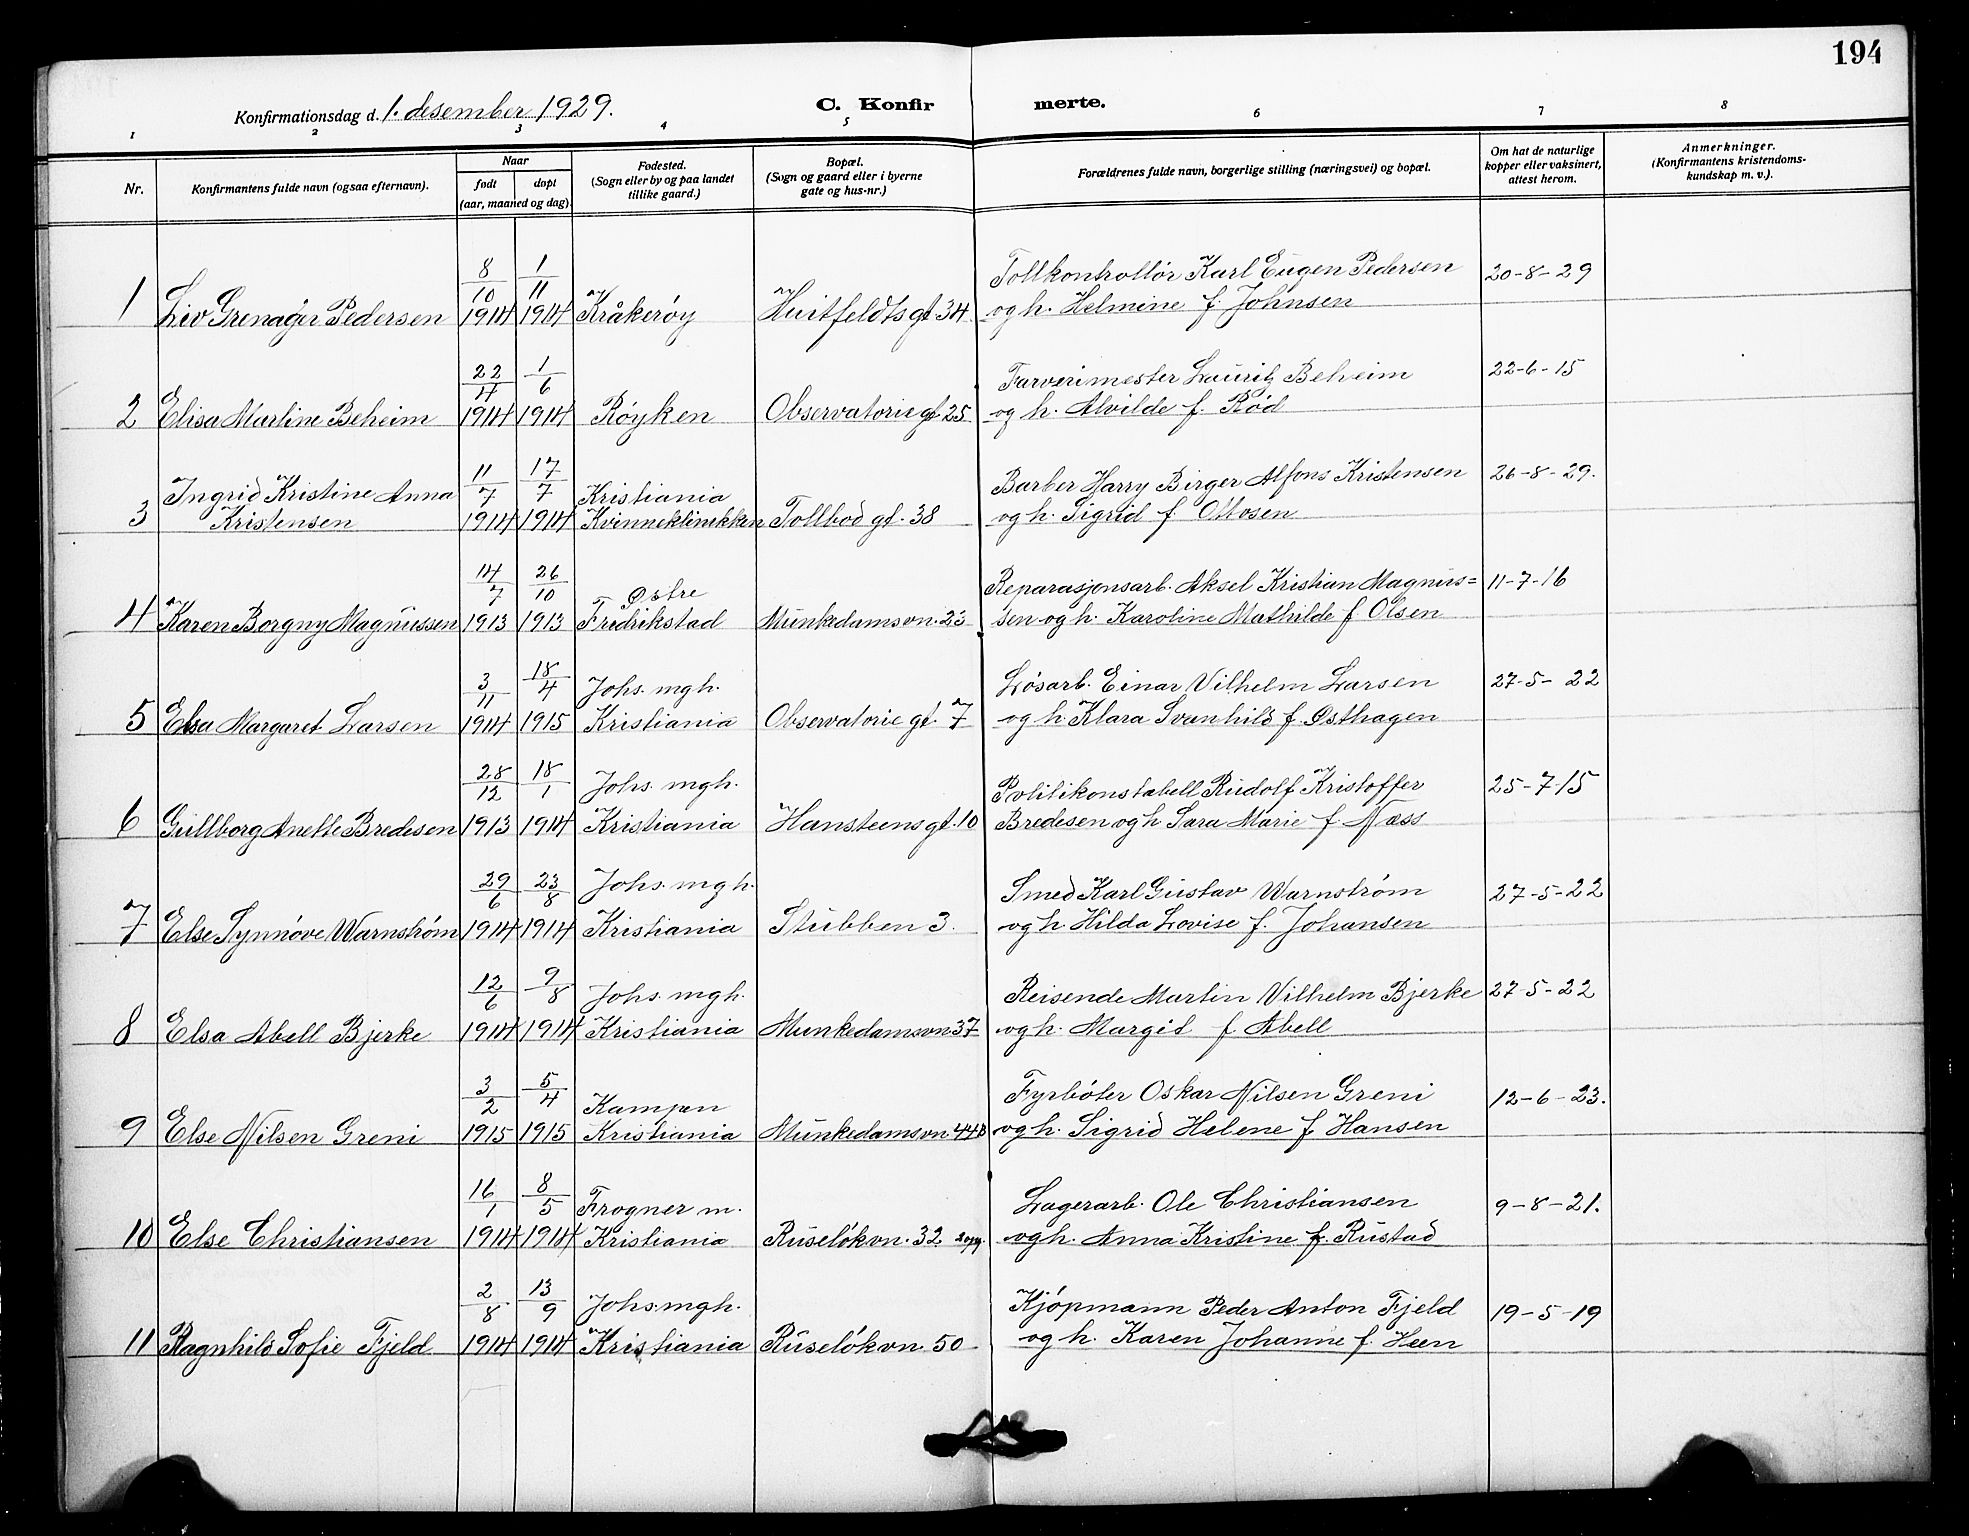 194
Konfirmationsdag d. 1. desember 1929.
C. Konfirmerte.
1 2 3 4 5 6 7 8
Nr.
Konfirmantens fulde navn (ogsaa efternavn).
Naar
født
døpt
(aar, maaned og dag).
Fødested.
(Sogn eller by og paa landet
tillike gaard.)
Bopæl.
(Sogn og gaard eller i byerne
gate og hus-nr.)
Forældrenes fulde navn, borgerlige stilling (næringsvei) og bopæl.
Om hat de naturlige
kopper eller vaksinert,
attest herom.
Anmerkninger.
(Konfirmantens kristendoms-
kundskap m. v.).
8/10 1/11 Tollkontrollør Karl Eugen Pedersen 20-8-29
1 Liv Grenager Pedersen 1914 1914 Kråkerøy Huitfeldtsgt 34 og h. Helmine f. Johnsen
22/4 1/6 Farverimester Lauritz Beheim 22-6-15
2 Elisa Martine Beheim 1914 1914 Røyken Observatoriegt 25 og h. Alvilde f. Rød
Ingrid Kristine Anna 11/7 17/7 Kristiania Barber Harry Birger Alfons Kristensen 26-8-29.
3 Kristensen 1914 1914 Kvinneklinikken Tollbod gt. 38 og h. Sigrid f Ottosen
14/7 26/10 Østre Reparasjonsarb. Aksel Kristian Magnus= 11-7-16
4 Karen Borgny Magnussen 1913 1913 Fredrikstad Munkedamsvn. 23 sen og h. Karoline Mathilde f Olsen
3/11 18/4 Johs. mgh. Løsarb. Einar Vilhelm Larsen 27-5-22
5 Elsa Margaret Larsen 1914 1915 Kristiania Observatorie gt. 7 og h Klara Svanhild f. Østhagen
28/12 18/1 Johs. mgh. Politikonstabell Rudolf Kristoffer 25-7-15
6 Gullborg Anette Bredesen 1913 1914 Kristiania Hansteensgt. 10 Bredesen og h Sara Marie f. Næss
29/6 23/8 Johs. mgh. Smed Karl Gustav Warnstrøm 27-5-22
7 Else Synnøve Warnstrøm 1914 1914 Kristiania Stubben 3. og h Hilda Lovise f. Johansen
12/6 9/8 Johs. mgh. Reisende Martin Vilhelm Bjerke 27-5-22
8 Elsa Abell Bjerke 1914 1914 Kristiania Munkedamsvn 37 og h. Margit f Abell
3/2 5/4 Kampen Fyrbøter Oskar Nilsen Greni 12-6-23.
9 Else Nilsen Greni 1915 1915 Kristiania Munkedamsvn 44 B og h. Sigrid Helene f. Hansen
16/1 8/5 Frogner m. Lagerarb. Ole Christiansen 9-8-21.
10 Else Christiansen 1914 1914 Kristiania Ruseløkvn. 32 2 opg. og h. Anna Kristine f. Rustad
2/8 13/9 Johs. mgh. Kjøpmann Peder Anton Fjeld 19-5-19
11 Ragnhild Sofie Fjeld 1914 1914 Kristiania Ruseløkvn. 50 og h. Karen Johanne f. Heen